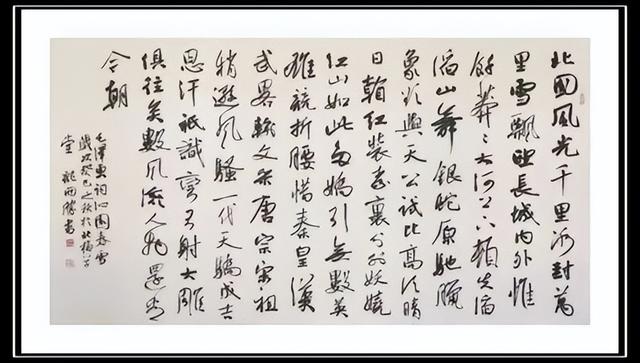 北國風光千里冰封萬
里雪飄望長城内外惟
餘莽々大河上下頓失滔
滔山舞銀蛇原馳臘
象欲與天公試比高須晴
日看紅裝素裹分外妖嬈
江山如此多嬌引無數英
雄競折腰惜秦皇漢
武略輸文采唐宗宋祖
稍遜風騷一代天驕成吉
思汗祇識彎弓射大雕
俱往矣數風流人物還看
今朝
毛澤東詞沁園春雪
歲次癸巳之秋於北
堂